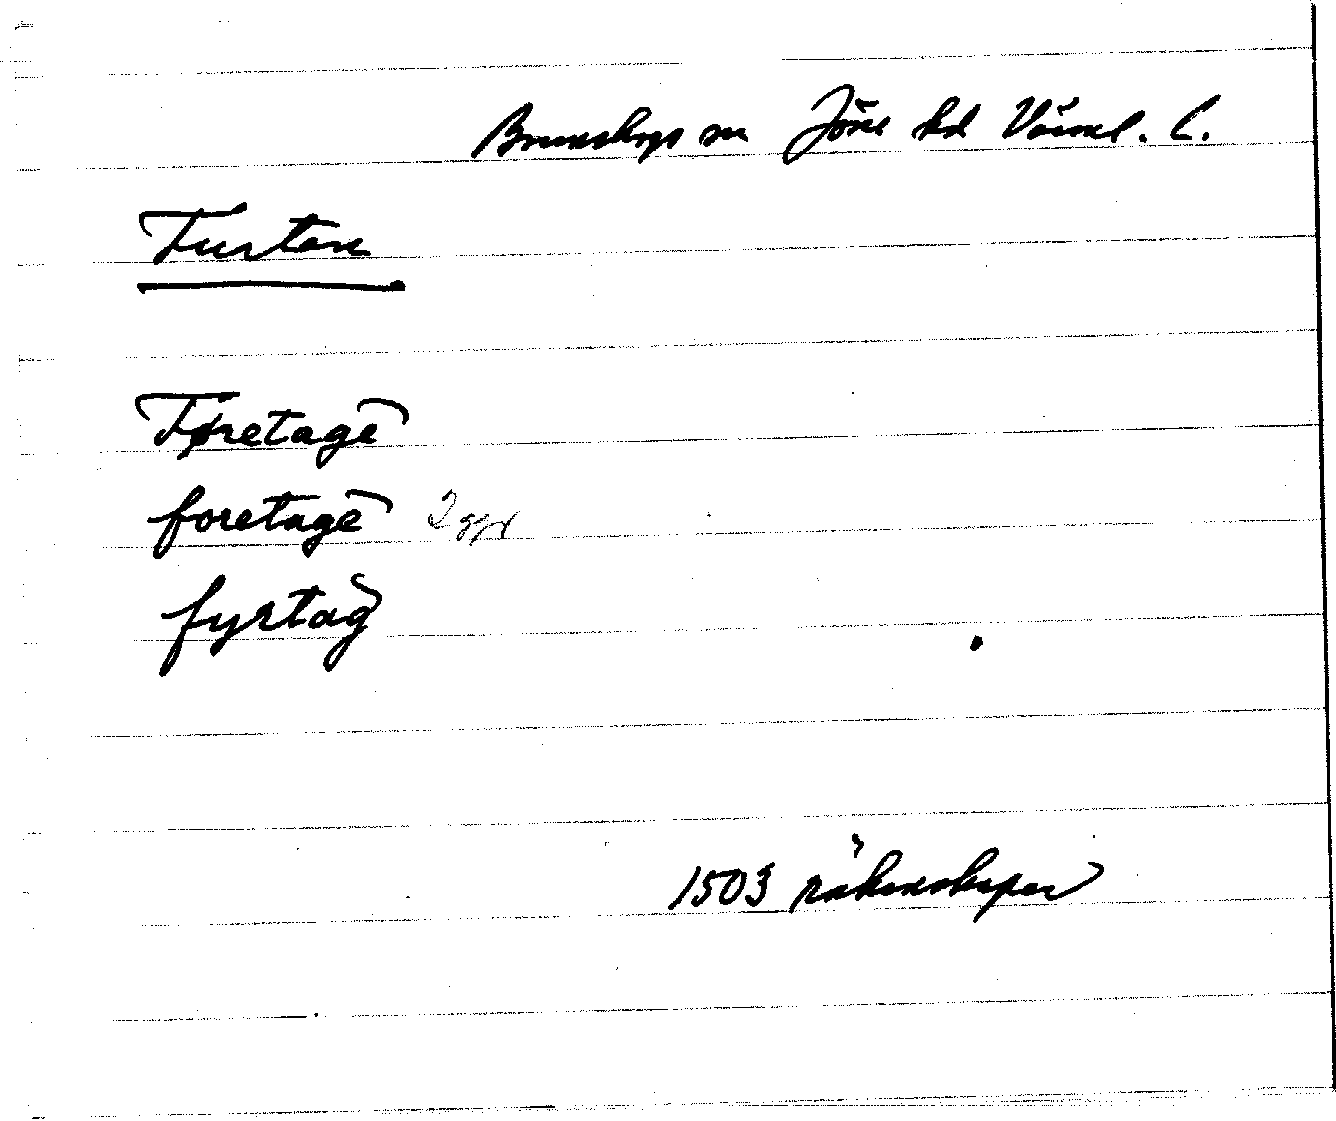 Brunskogs sn Jösse hd Värml. l.
Furtan
Føretagē
foretagē 2 ggr
fyrtag̃
1503 räkenskaper